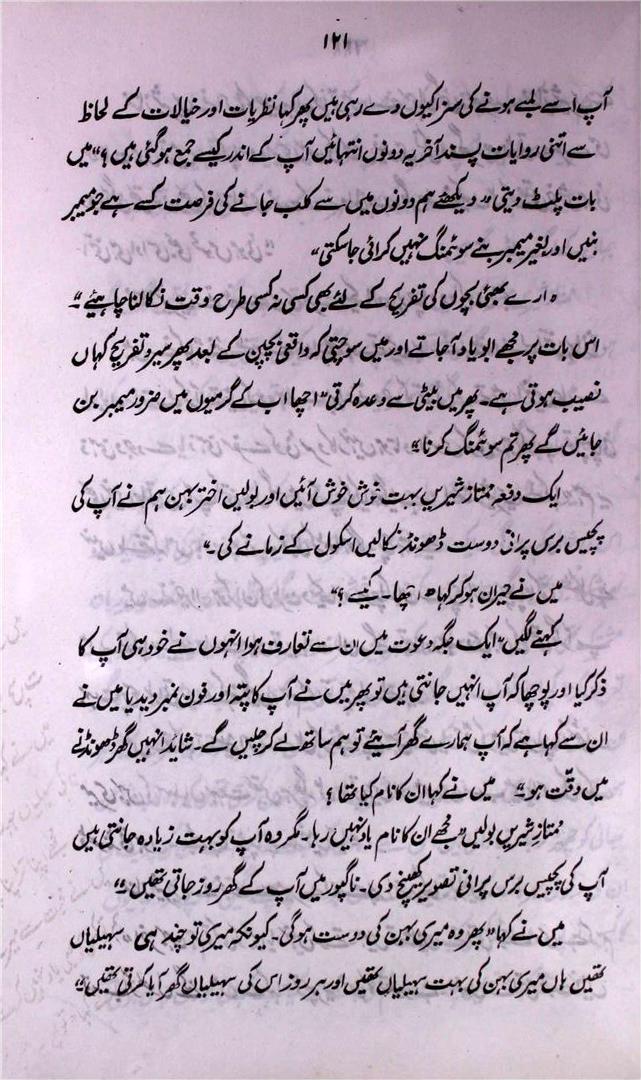 ۱۲۱
آپ اسے لمبے ہونے کی سزا کیوں دے رہی ہیں پھر کہا نظریات اور خیالات کے لحاظ
سے اتنی روایات پسند آخر یہ دونوں انتہائیں آپ کے اندر کیسے جمع ہو گئی ہیں ؟" میں
بات پلٹ دیتی "دیکھئے ہم دونوں میں سے کلب جانے کی فرصت کسے ہے جو میمبر
بنیں اور بغیر میمبر بنے سوئمنگ نہیں کرائی جا سکتی"
"ارے بھئی بچوں کی تفریح کے لئے بھی کسی نہ کسی طرح وقت نکالنا چاہیئے"
اس بات پر مجھے ابو یاد آجاتے اور میں سوچتی کہ واقعی بچپن کے بعد پھر سیر و تفریح کہاں
نصیب ہوتی ہے۔ پھر میں بیٹی سے وعدہ کرتی "اچھا اب کے گرمیوں میں ضرور میمبر بن
جائیں گے پھر تم سوئمنگ کرنا"
ایک دفعہ ممتاز شیریں بہت خوش خوش آئیں اور بولیں اختر بہن ہم نے آپ کی
پچیس برس پرانی دوست ڈھونڈ نکالیں اسکول کے زمانے کی۔"
میں نے حیران ہو کر کہا "اچھا۔ کیسے ؟"
کہنے لگیں "ایک جگہ دعوت میں ان سے تعارف ہوا انہوں نے خود ہی آپ کا
ذکر کیا اور پوچھا کہ آپ انہیں جانتی ہیں تو پھر میں نے آپ کا پتہ اور فون نمبر دیدیا میں نے
ان سے کہا ہے کہ آپ ہمارے گھر آیئے تو ہم ساتھ لے کر چلیں گے۔ شائد انہیں گھر ڈھونڈنے
میں دقّت ہو" میں نے کہا ان کا نام کیا تھا ؟
ممتاز شیریں بولیں "مجھے ان کا نام یاد نہیں رہا۔ مگر وہ آپ کو بہت زیادہ جانتی ہیں
آپ کی پچیس برس پرانی تصویر کھینچ دی۔ ناگپور میں آپ کے گھر روز جاتی تھیں"
میں نے کہا "پھر وہ میری بہن کی دوست ہوگی۔ کیونکہ میری تو چند ہی سہیلیاں
تھیں ہاں میری بہن کی بہت سہیلیاں تھیں اور ہر روز اس کی سہیلیاں گھر آیا کرتی تھیں"